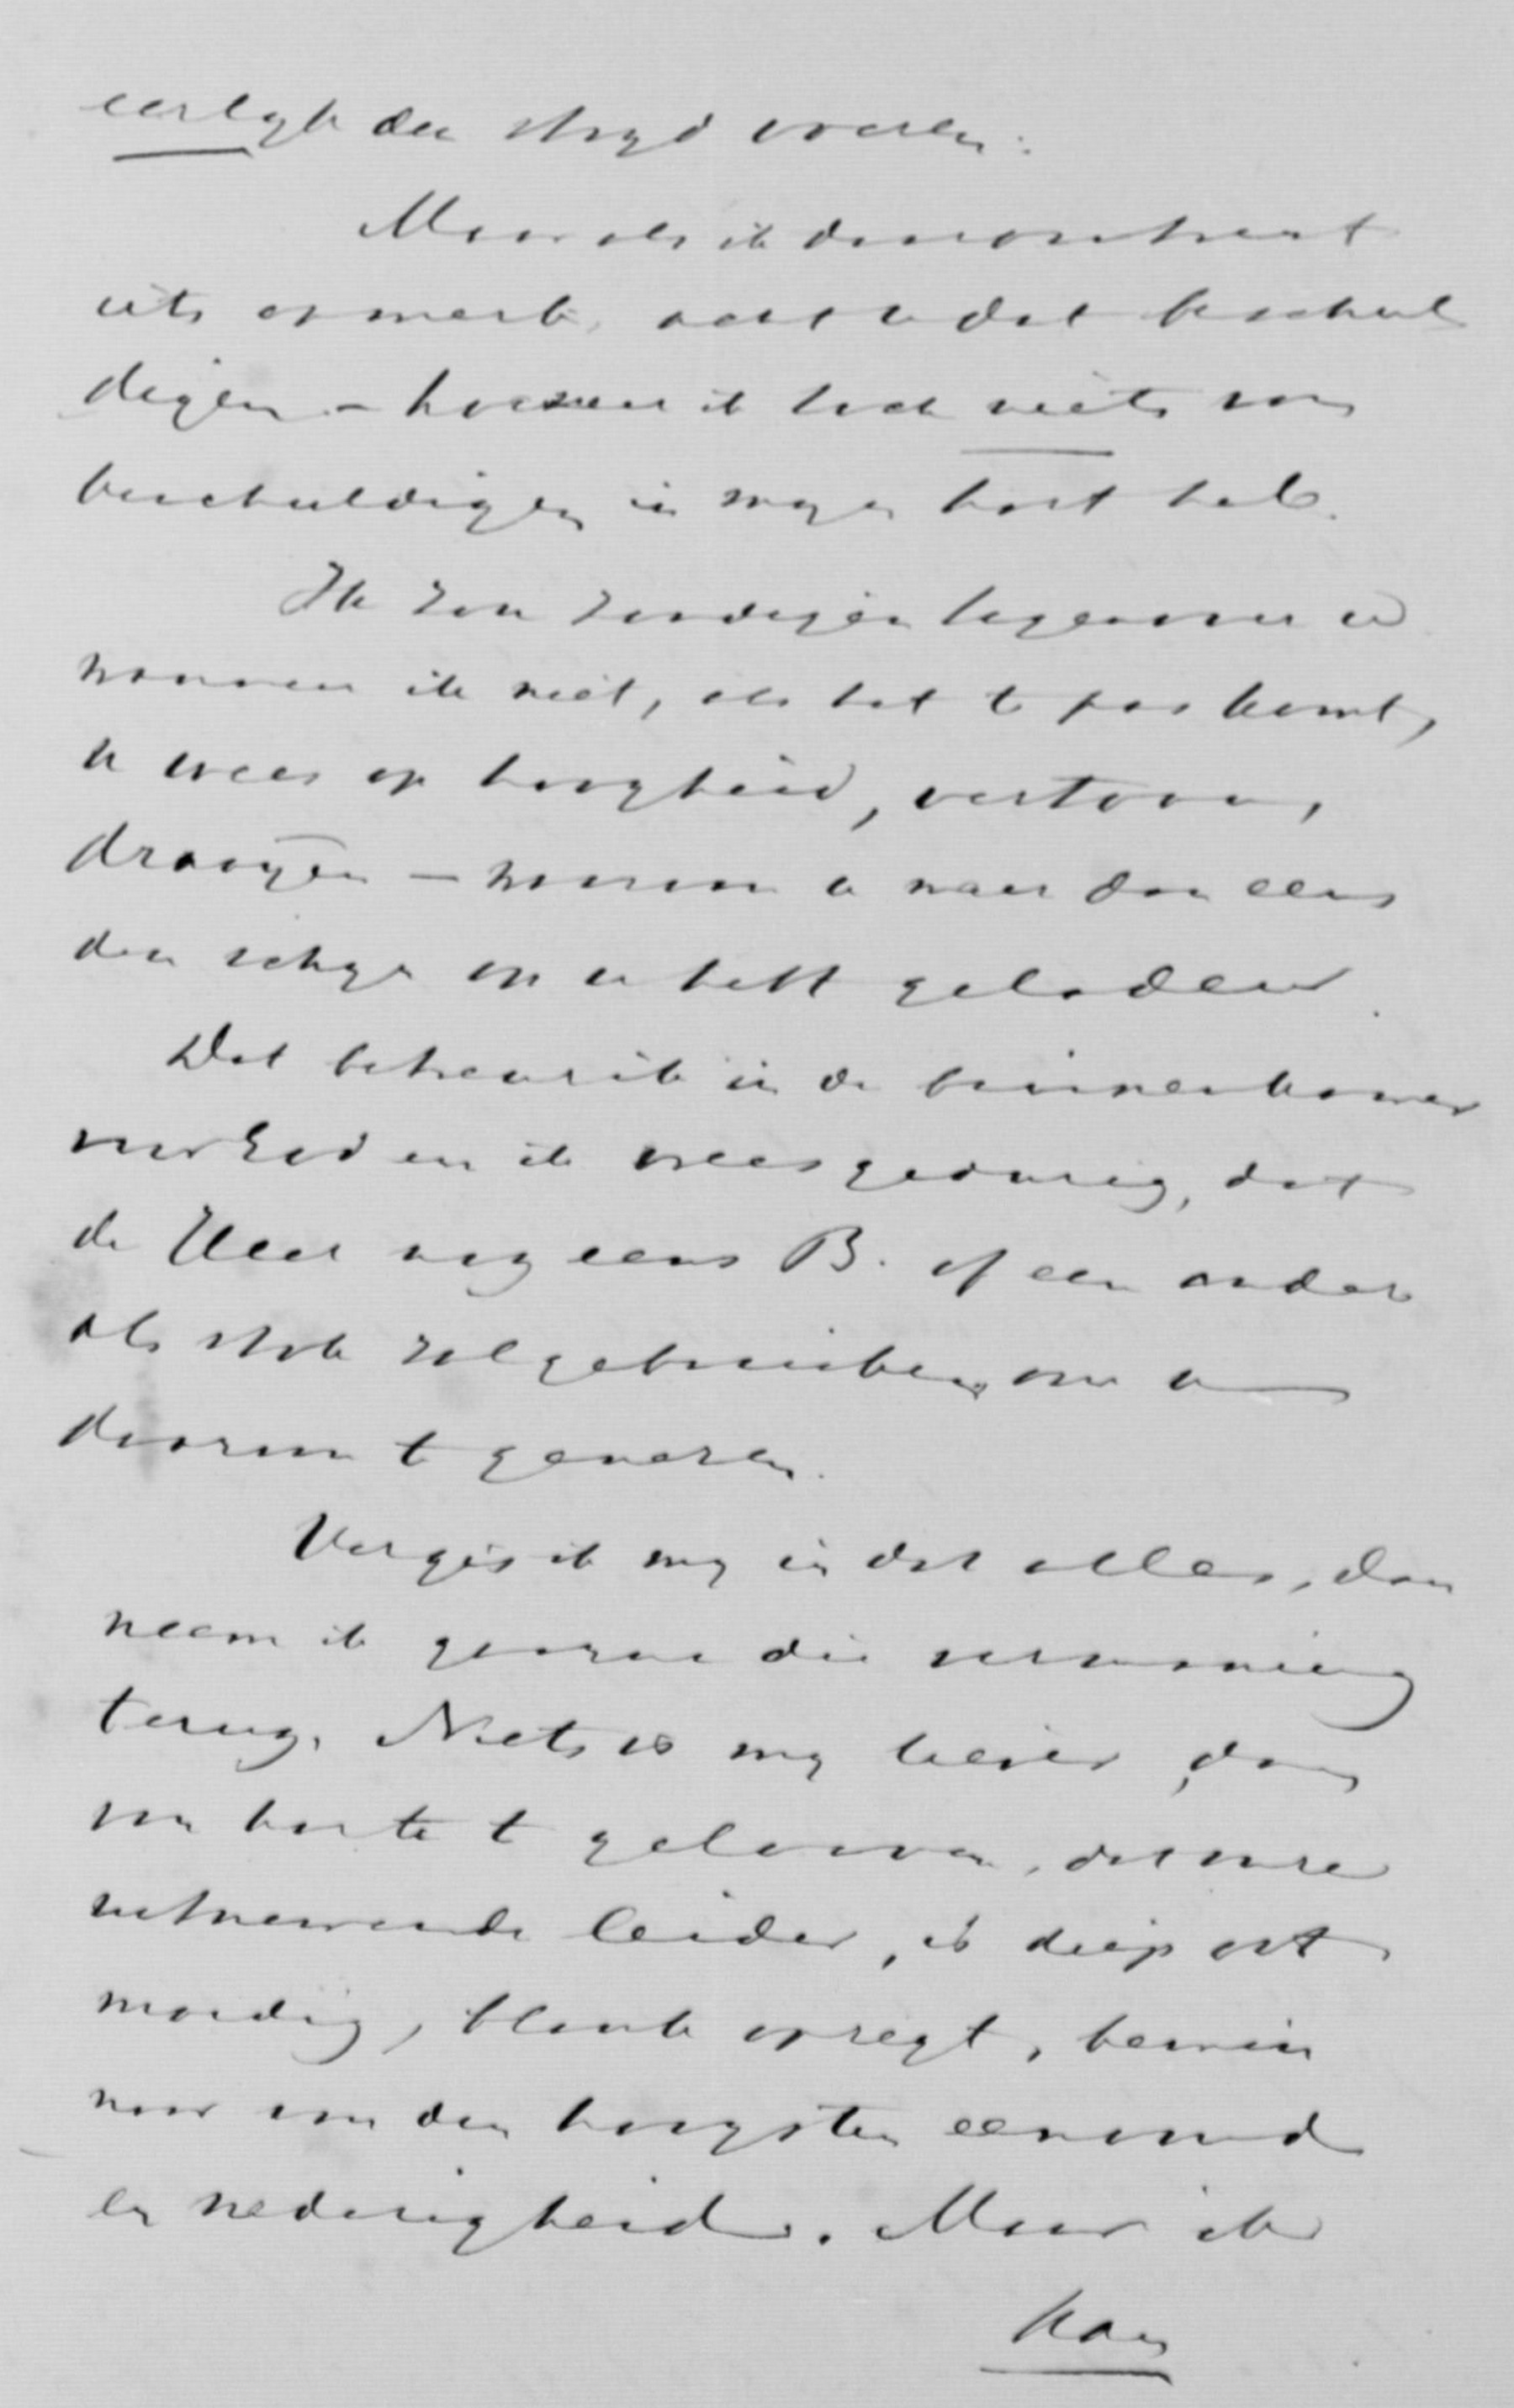 eerlyk den stryd voeren.
Maar als ik daaromtrent
iets opmerk, acht u dat beschul
digen - hoezeer ik toch niets van
beschuldigen in myn hart heb.
Ik zou zondigen tegenover u
wanneer ik niet, als het te pas komt,
u wees op hoogheid, vertoon,
draaijen - waarom u maar dan eens
den schyn op u hebt geladen.
Dat betreur ik in de binnenkamer
voor God en ik vrees gedurig, dat
de Heer nog eens B. of een ander
als stok zal gebruiken, om u
daarvan te genezen.
Vergis ik my in dat alles, dan
neem ik gaarne die vermaning
terug. Niets is my liever dan
van harte te gelooven, dat onze
uitnemende leider, is diep oot
moedig, blank opregt, bemin
naar van den hoogsten eenvoud
en nederigheid. Maar ik
kan